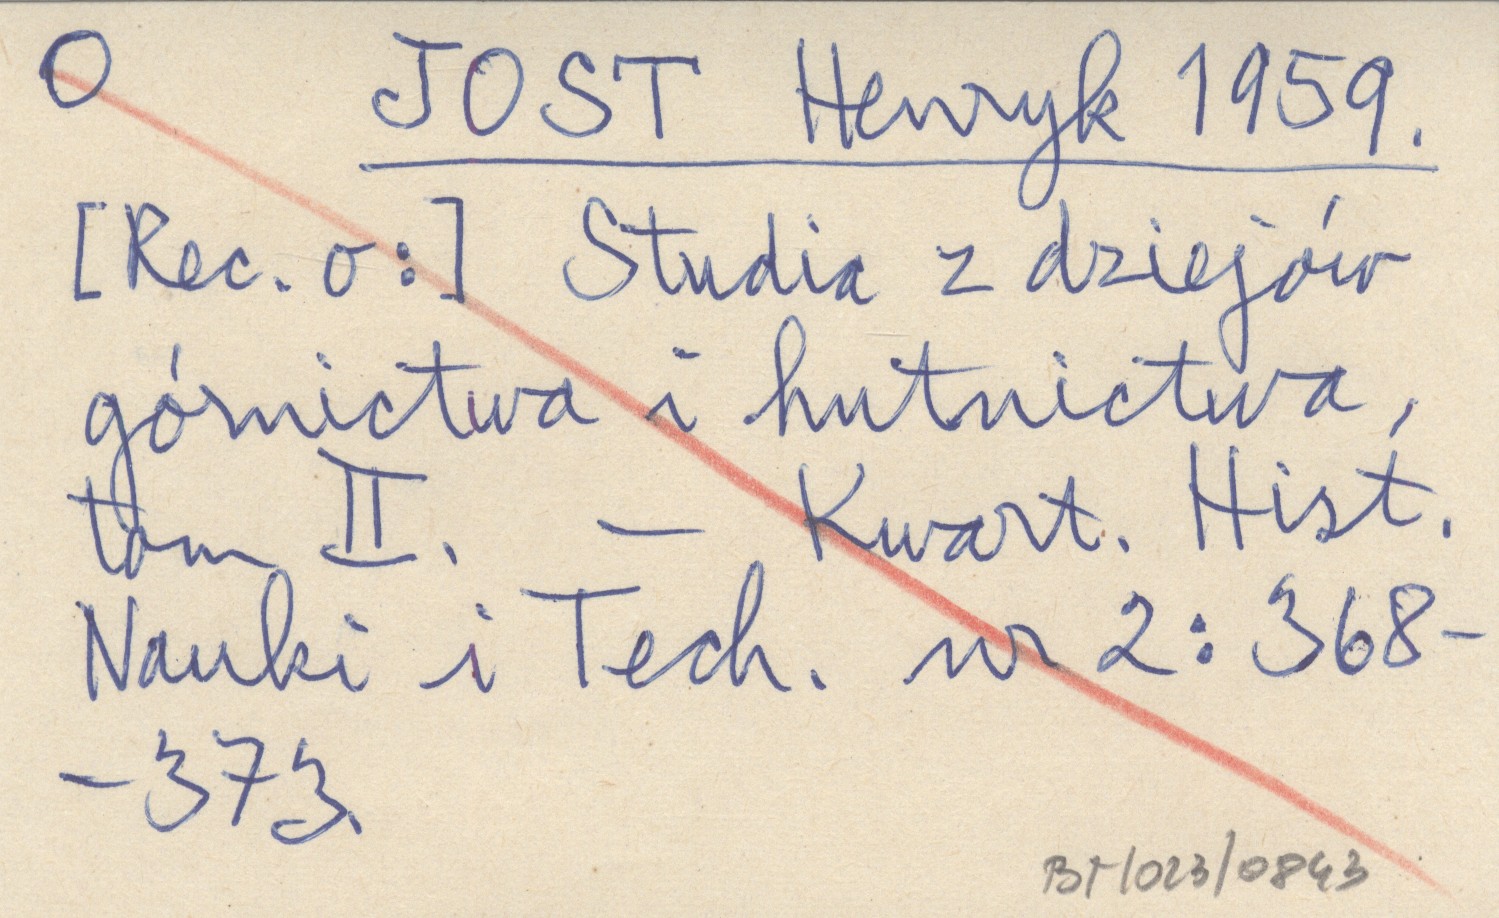 O JOST Henryk 1959.
[Rec. o:] Studia z dziejów
górnictwa i hutnictwa,
tom II. — Kwart. Hist.
Nauki i Tech. nr 2: 368-
-373.
BT/023/0843